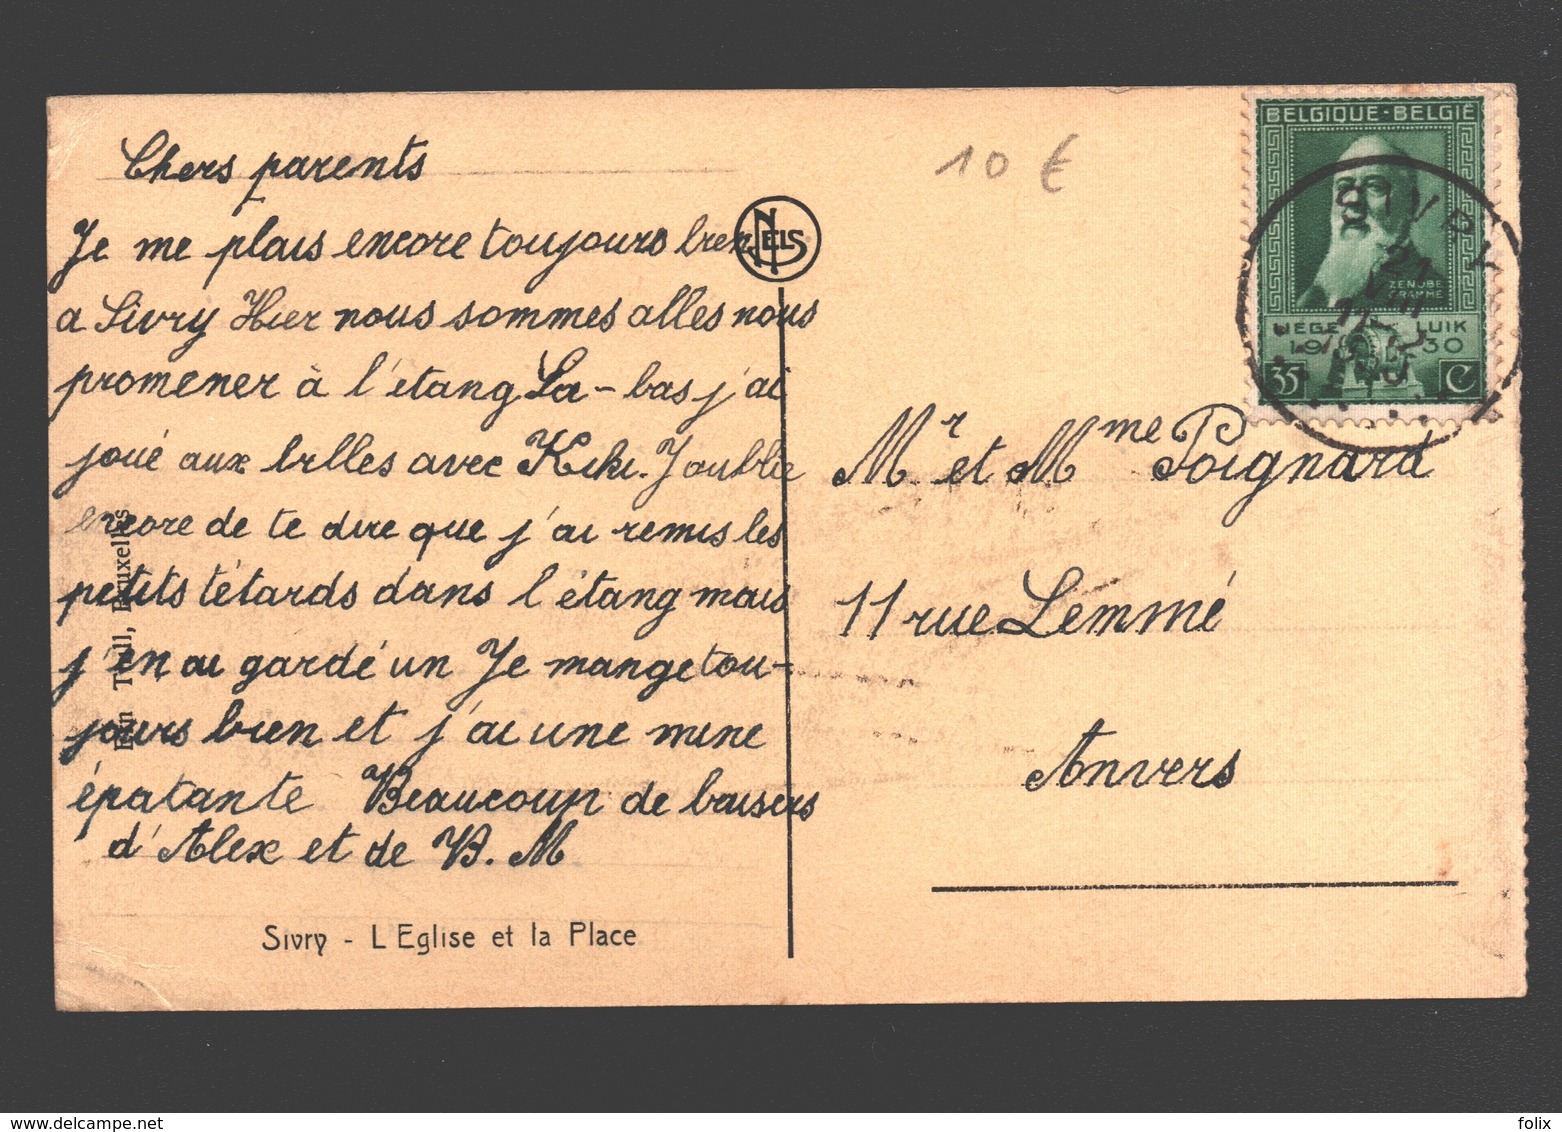 Chers parents
Je me plais encore toujours bien
a Sivry Hier nous sommes alles nous
promener à l'étang La-bas j'ai
joué aux billes avec Kiki. J oublie
encore de te dire que j'ai remis les
petits tétards dans l'étang mais
j'en ai gardé un Je mange tou-
jours bien et j'ai une mine
épatante Beaucoup de baisers
d'Alex et de B. M
Sivry - L Eglise et la Place
NELS
Bruxelles
10 €
BELGIQUE-BELGIË
ZENOBE
GRAMME
LIEGE LUIK
1930
35 C
SIVRY
21
Mr et Mme Poignard
11 rue Lémmé
Anvers
delcampe.net
folix